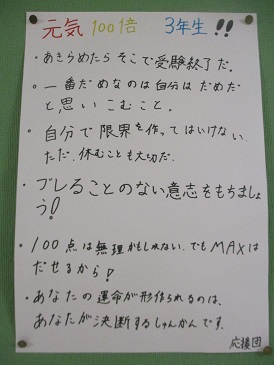 元気100倍 3年生!!
・あきらめたらそこで受験終了だ。
・一番だめなのは自分はだめだ
と思いこむこと。
・自分で限界を作ってはいけない。
ただ、休むことも大切だ。
・ブレることのない意志をもちましょ
う!
・100点は無理かもしれない。でもMAXは
だせるから!
・あなたの運命が形作られるのは、
あなたが決断するしゅんかんです。
応援団